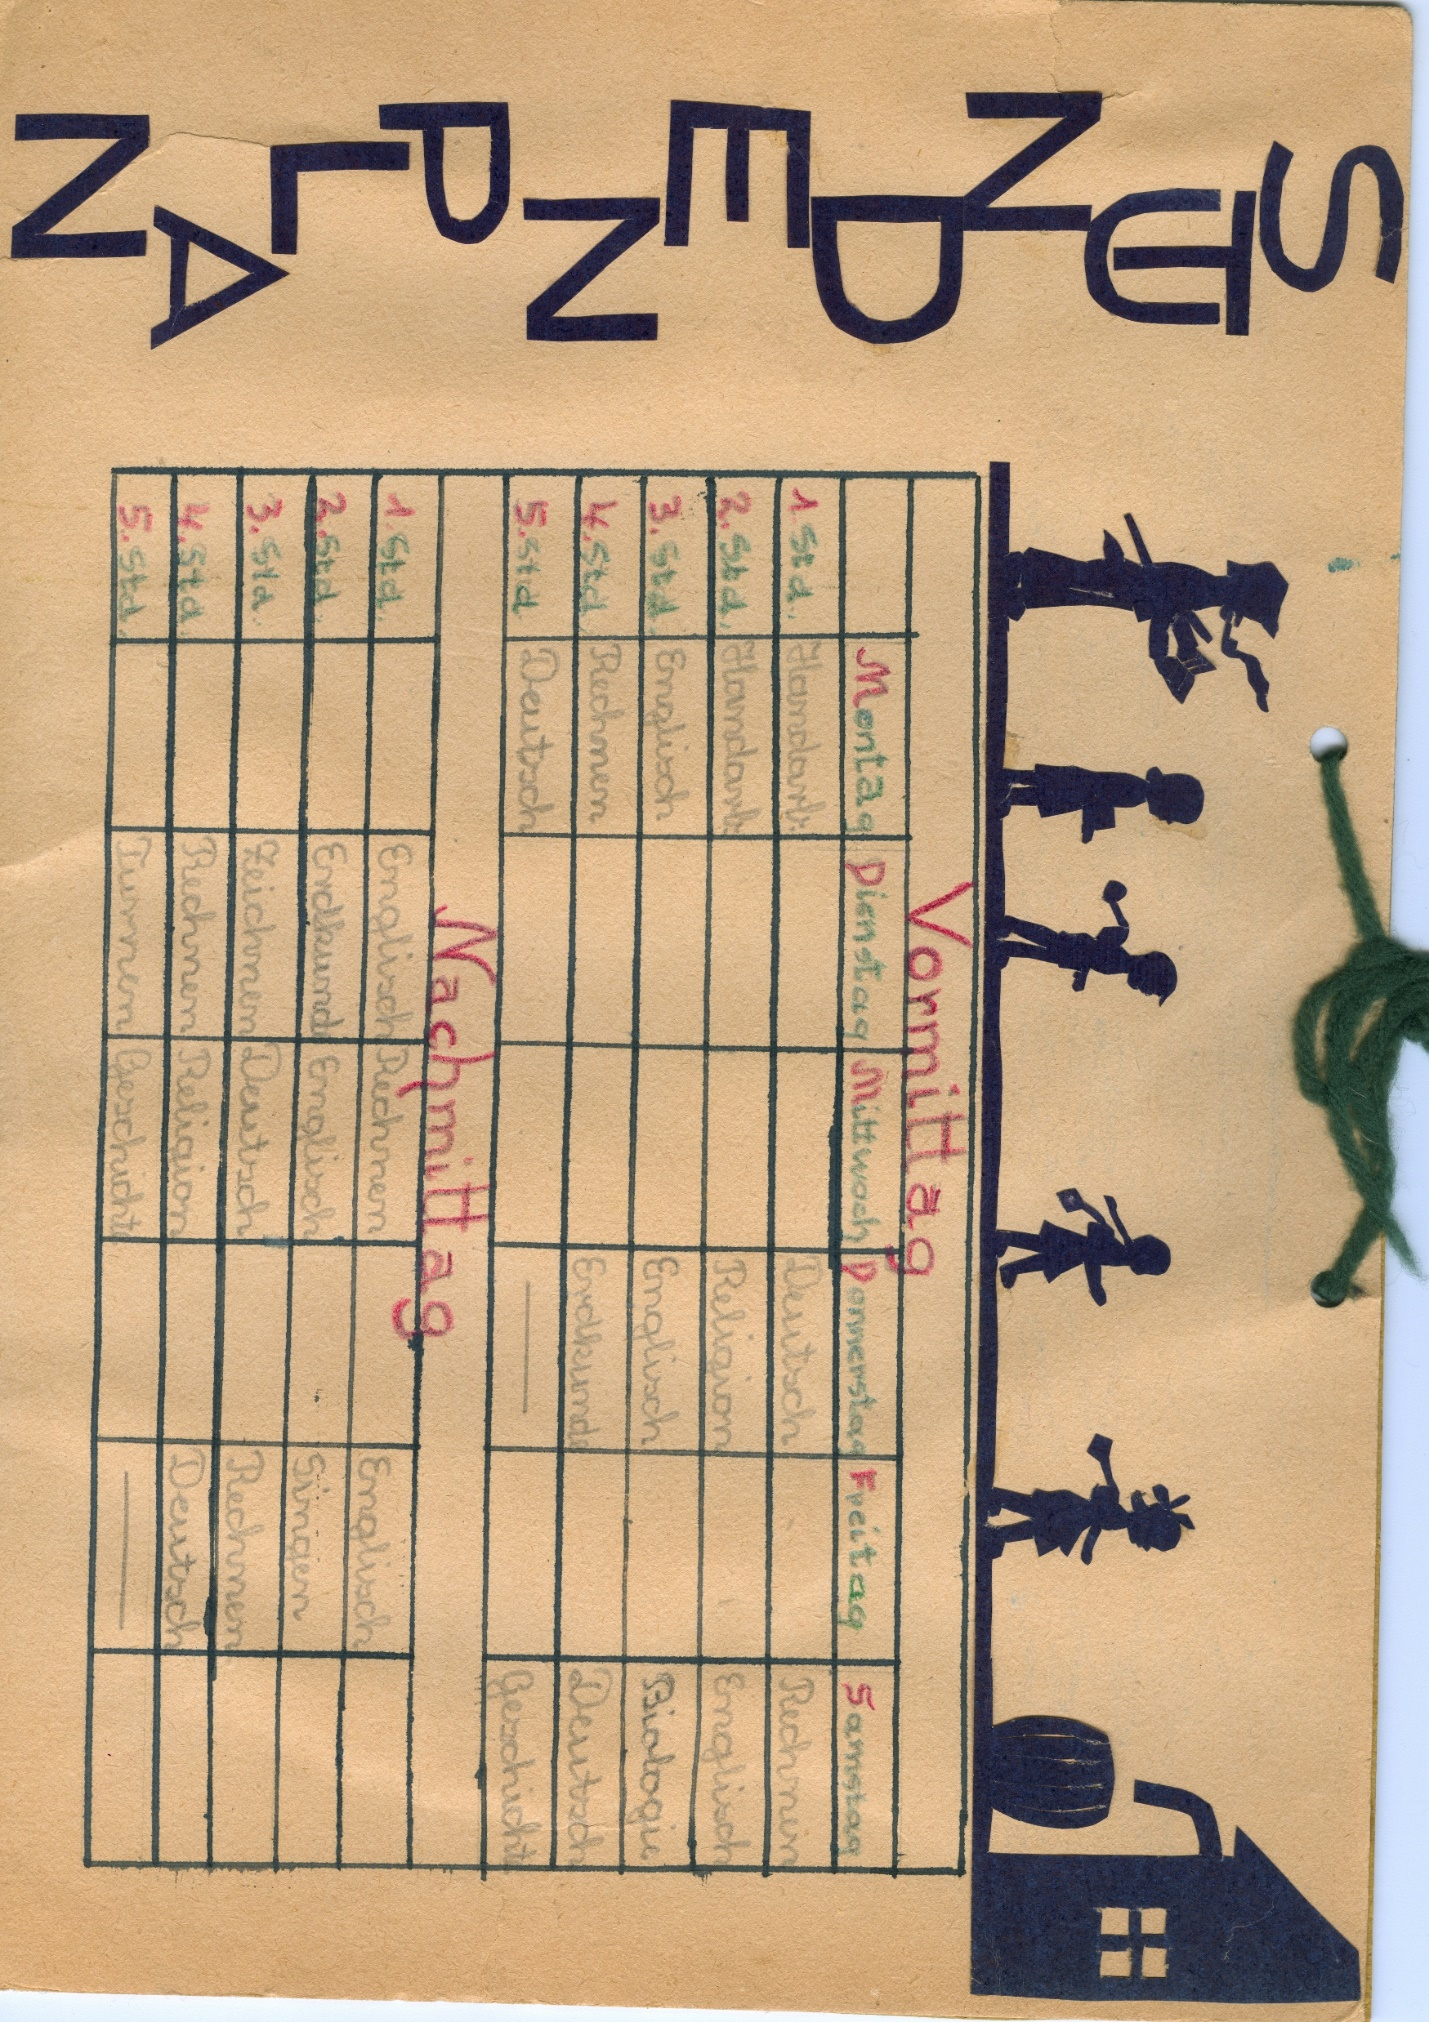 STUNDENPLAN
Vormittag
Montag Dienstag Mittwoch Donnerstag Freitag Samstag
1. Std. Handarb. Deutsch Rechnin
2. Std. Handarb. Religion Englisch
3. Std. Englisch Englisch Biologie
4. Std. Rechnen Erdkunde Deutsch
5. Std. Deutsch — Geschicht
Nachmittag
1. Std. Englisch Rechnen Englisch
2. Std. Erdkund Englisch Singen
3. Std. Zeichnen Deutsch Rechnen
4. Std. Rechnen Religion Deutsch
5. Std. Turnen Geschicht —